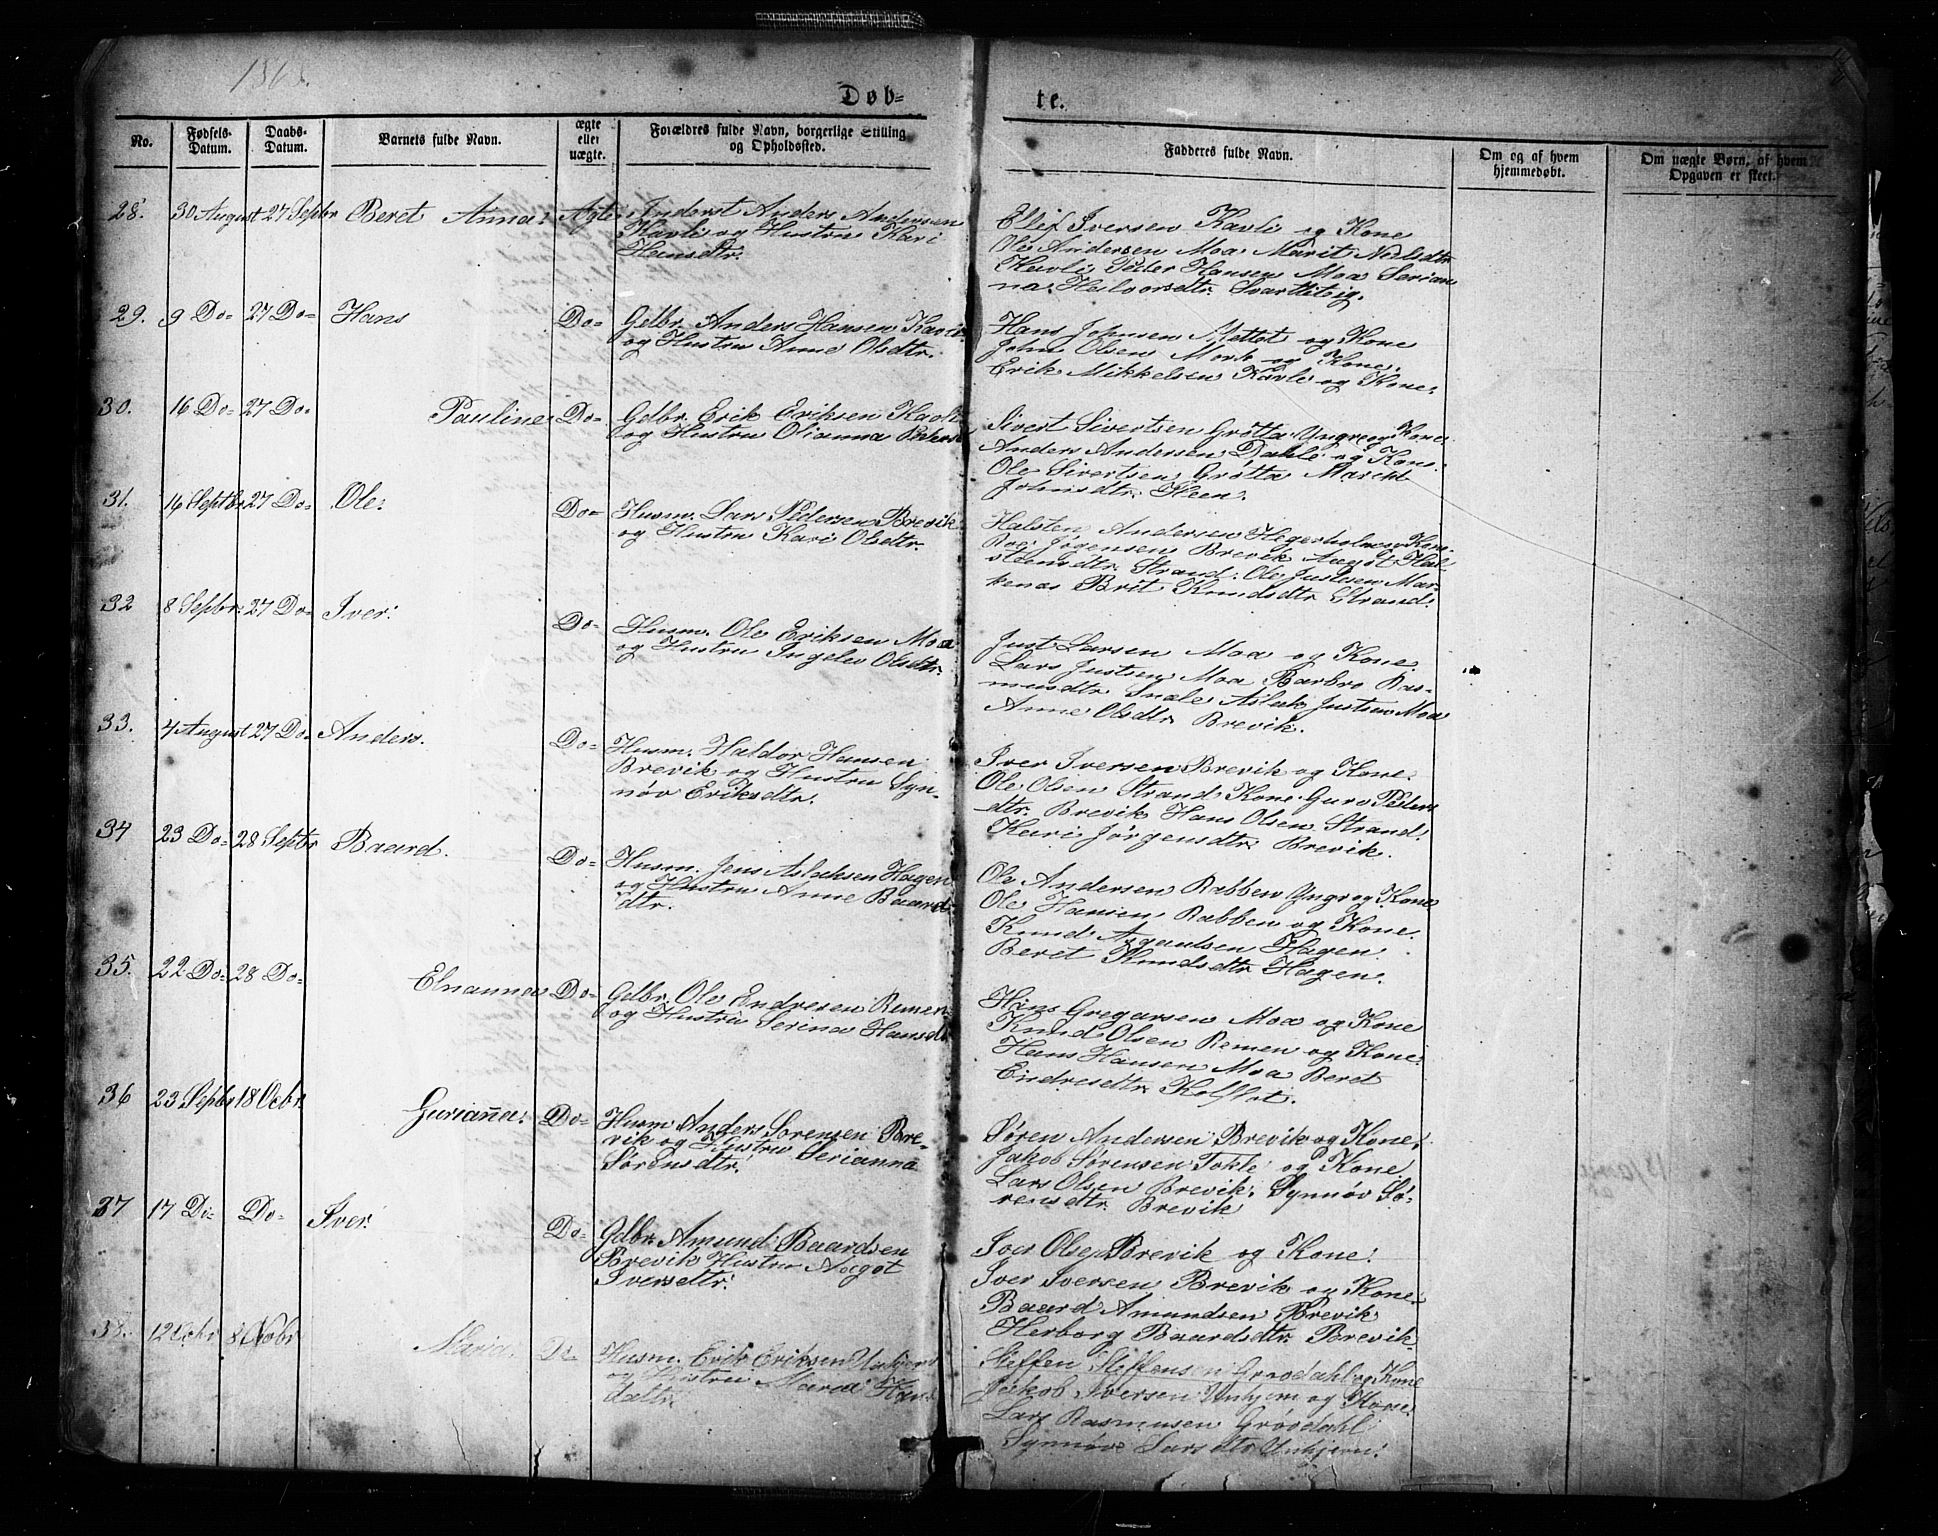 Døb=
te.
No.
Fødsels-
Datum.
Daabs-
Datum.
Barnets fulde Navn.
ægte
eller
uægte.
Forældres fulde Navn, borgerlige Stilling
og Opholdssted.
Fadderes fulde Navn.
Om og af hvem
hjemmedøbt.
Om uægte Børn, af hvem
Opgaven er skeet.
28. 30 August 27 Septbr Beret Anna: Ægte Anders Andersen
Kavli og Hustru Kari
Hansdtr.
Ellef Iversen Kavli og Kone
Ole Andersen Moa Marit Nielsdtr
Kavli, Peder Hansen Moa Serian-
na Halvorsdtr.
29. 9 Do= 27 Do= Hans Do= Gdbr. Anders Hansen Kavli
og Hustru Anne Olsdtr.
Hans Johnsen Mettet og Kone
John Olsen Mork og Kone.
Erik Mikkelsen Kavli og Kone.
30. 16 Do= 27 Do= Pauline Do= Gdbr. Erik Eriksen Kavli
og Hustru Olianna Peders
Sivert Sivertsen Grøtta Yngre og Kone
Anders Andersen Dahle og Kone
Ole Sivertsen Grøtta Marit
Johnsdtr. Heen.
31. 16 Septbr 27 Do= Ole: Do= Husm. Lars Pedersen Brevik
og Hustru Kari Olsdtr.
Halsten Andersen Hegerholmen Kone
Roe Jørgensen Brevik Aagot Hal-
steensdtr. Strand. Ole Justesen Mar-
kenæs Brit Knudsdtr Strand.
32 8 Sepbr: 27 Do= Iver: Do= Husm. Ole Eriksen Moa
og Hustru Ingelev Olsdtr.
Just Larsen Moa og Kone
Lars Justsen Moa Barbro Ras-
musdtr. Aslak Justsen Moa
Anne Olsdtr. Brevik.
33. 4 August 27 Do= Anders. Do= Husm. Haldor Hansen
Brevik og Hustru Syn-
nøv Eriksdtr.
Iver Iversen Brevik og Kone.
Ole Olsen Strand Kone. Guro Peders
dtr. Brevik Hans Olsen Strand.
Kari Jørgensdtr. Brevik.
34 23 Do= 28 Septbr Baard. Do= Husm. Jens Aslaksen Hagen
og Hustru Anne Baard-
dtr.
Ole Andersen Rabben Yngr og Kone
Ole Hansen Rabben og Kone.
Knud Hagen.
Beret Knudsdtr. Hagen.
35. 22 Do= 28 Do= Elnanna Do= Gdbr. Ole Endresen Remen
og Hustru Serina Hansdt
Hans Gregarsen Moa og Kone
Knud Olsen Remen og Kone.
Hans Hansen Moa Beret
Endresdtr. Kolflot.
36 23 Sepbr 18 Octbr. Gurianna: Do= Husm Anders Sørensen Bre-
vik og Hustru Serianna
Sørensdtr.
Søren Andersen Brevik og Kone.
Jakob Sørensen Tokle og Kone
Lars Olsen Brevik. Synnøv Sø-
rensdtr. Brevik
37 17 Do= Do= Iver. Do= Gdbr. Amund Baardsen
Brevik Hustru Aagot
Iversdtr.
Iver Olsen Brevik og Kone.
Iver Iversen Brevik og Kone.
Baard Amundsen Brevik
Herborg Baardsdtr. Brevik
38. 12 Octbr 8 Novbr Maria. Do= Husm. Erik Eriksen Unhjem
og Hustru
Steffen Steffensen Grøvdahl og Kone
Jakob Iversen Unhjem og Kone.
Lars Rasmusen Grøvdahl
Synnøv Larsdtr Unhjem.